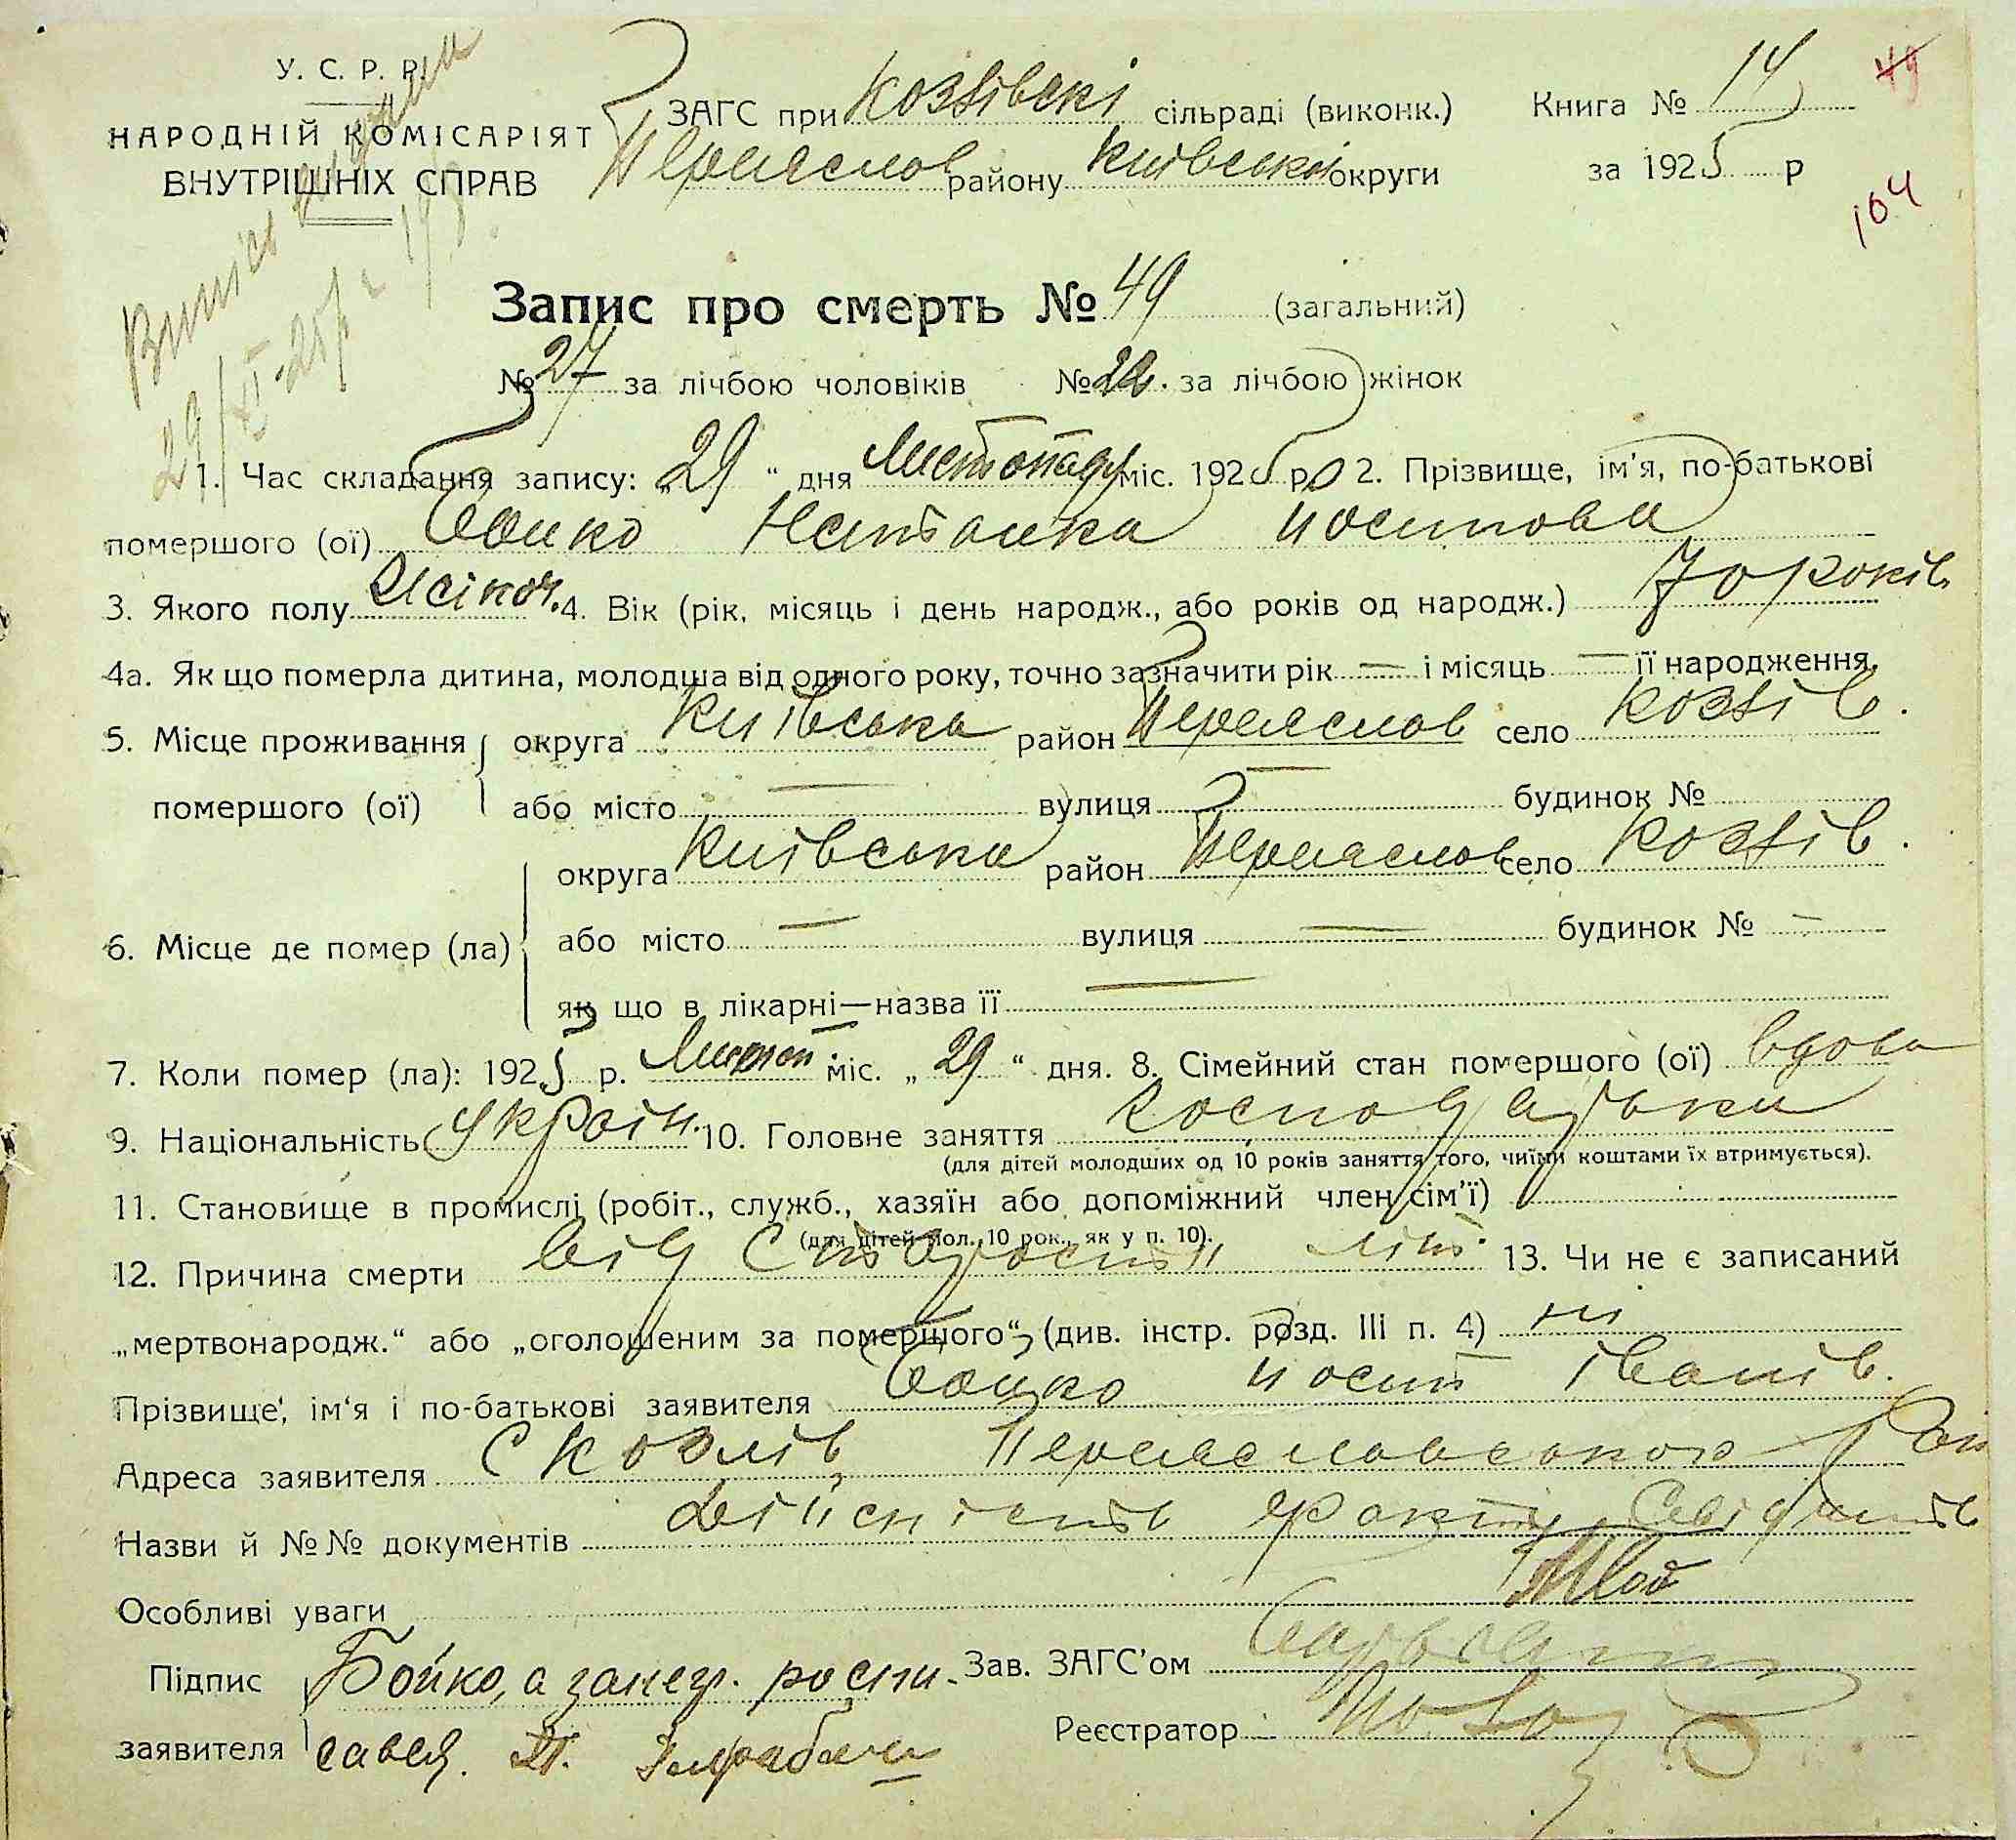 У. С. Р. Р.
НАРОДНІЙ КОМІСАРІЯТ
ВНУТРІШНІХ СПРАВ
ЗАГС при Козлівскі сільраді (виконк.)
Переяслов району Київської округи
Книга № 14
за 1925 р
49
104
Випись видана
29/XI-25р
Запис про смерть № 49 (загальний)
№ 27 за лічбою чоловіків № 22. за лічбою жінок
1. Час складання запису: „29“ дня Листопаду міс. 1925 р. 2. Прізвище, ім'я, по-батькові
помершого (ої) Бойко Настанка Йосипова
3. Якого полу Жіноч. 4. Вік (рік, місяць і день народж., або років од народж.) 70 років
4а. Як що померла дитина, молодша від одного року, точно зазначити рік — і місяць — її народження.
5. Місце проживання округа Київська район Переяслов село Козлів.
помершого (ої) або місто — вулиця — будинок №
округа Київська район Переяслов село Козлів.
6. Місце де помер (ла) або місто — вулиця — будинок № —
як що в лікарні—назва її —
7. Коли помер (ла): 1925 р. Листоп. міс. „29“ дня. 8. Сімейний стан помершого (ої) вдова
9. Національність Україн. 10. Головне заняття господарька
(для дітей молодших од 10 років заняття того, чиїми коштами їх втримується).
11. Становище в промислі (робіт., служб., хазяїн або допоміжний член сім'ї)
(для дітей мол. 10 рок., як у п. 10).
12. Причина смерти від старости літ. 13. Чи не є записаний
„мертвонародж.“ або „оголошеним за помершого“, (див. інстр. розд. III п. 4) ні
Прізвище, ім'я і по-батькові заявителя Бойко Йосип Іванів.
Адреса заявителя с Козлів Переяславського Рай
Назви й №№ документів Дійсність факту
Особливі уваги
Підпис Бойко, а за негр. роспи-
заявителя сався.
Зав. ЗАГС'ом
Реєстратор